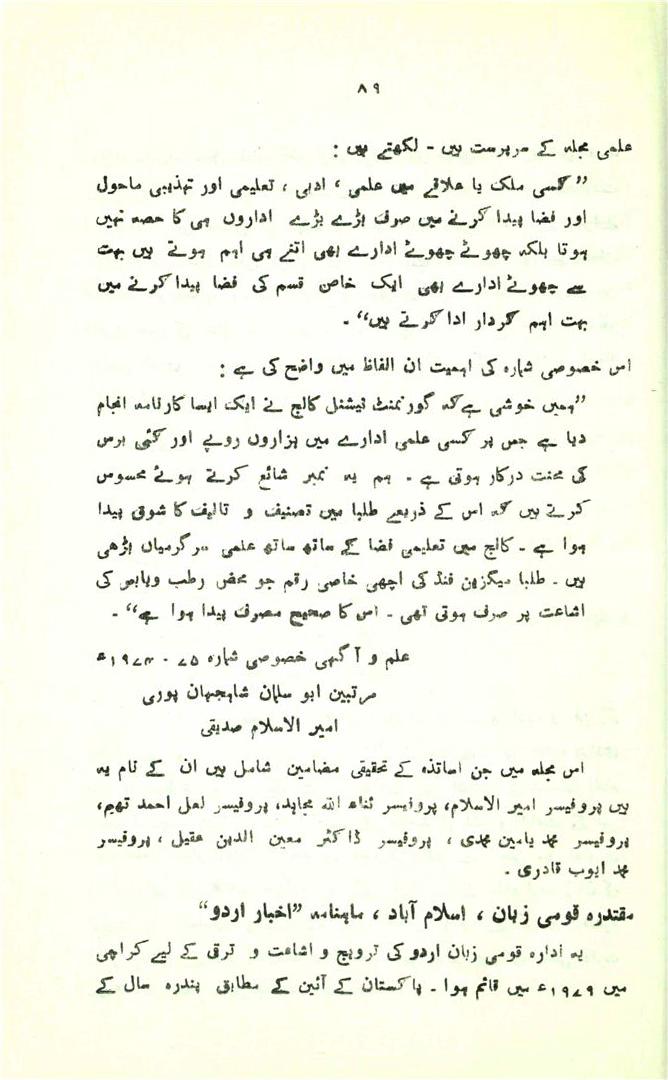 ۸۹
علمی مجلہ کے سرپرست ہیں - لکھتے ہیں :
”کسی ملک یا علاقے میں علمی ، ادبی ، تعلیمی اور تہذیبی ماحول
اور فضا پیدا کرنے میں صرف بڑے بڑے اداروں ہی کا حصہ نہیں
ہوتا بلکہ چھوٹے چھوٹے ادارے بھی اتنے ہی اہم ہوتے ہیں بہت
سے چھوٹے ادارے بھی ایک خاص قسم کی فضا پیدا کرنے میں
بہت اہم کردار ادا کرتے ہیں“ -
اس خصوصی شمارہ کی اہمیت ان الفاظ میں واضح کی ہے :
”ہمیں خوشی ہے کہ گورنمنٹ نیشنل کالج نے ایک ایسا کارنامہ انجام
دیا ہے جس پر کسی علمی ادارے میں ہزاروں روپے اور کئی برس
کی محنت درکار ہوتی ہے - ہم یہ نمبر شائع کرتے ہوئے محسوس
کرتے ہیں کہ اس کے ذریعے طلبا میں تصنیف و تالیف کا شوق پیدا
ہوا ہے - کالج میں تعلیمی فضا کے ساتھ ساتھ علمی سرگرمیاں بڑھی
ہیں - طلبا میگزین فنڈ کی اچھی خاصی رقم جو محض رطب ویابس کی
اشاعت پر صرف ہوتی تھی - اس کا صحیح مصرف پیدا ہوا ہے“ -
علم و آگہی خصوصی شمارہ ۷۵ - ۱۹۷۴ء
مرتبین ابو سلمان شاہجہان پوری
امیر الاسلام صدیقی
اس مجلہ میں جن اساتذہ کے تحقیقی مضامین شامل ہیں ان کے نام یہ
ہیں پروفیسر امیر الاسلام، پروفیسر ثناء اللہ مجاہد، پروفیسر لعل احمد تھیم،
پروفیسر محمد یامین محمدی ، پروفیسر ڈاکٹر معین الدین عقیل ، پروفیسر
محمد ایوب قادری -
مقتدرہ قومی زبان ، اسلام آباد ، ماہنامہ ”اخبار اردو“
یہ ادارہ قومی زبان اردو کی ترویج و اشاعت و ترقی کے لیے کراچی
میں ۱۹۷۹ء میں قائم ہوا - پاکستان کے آئین کے مطابق پندرہ سال کے